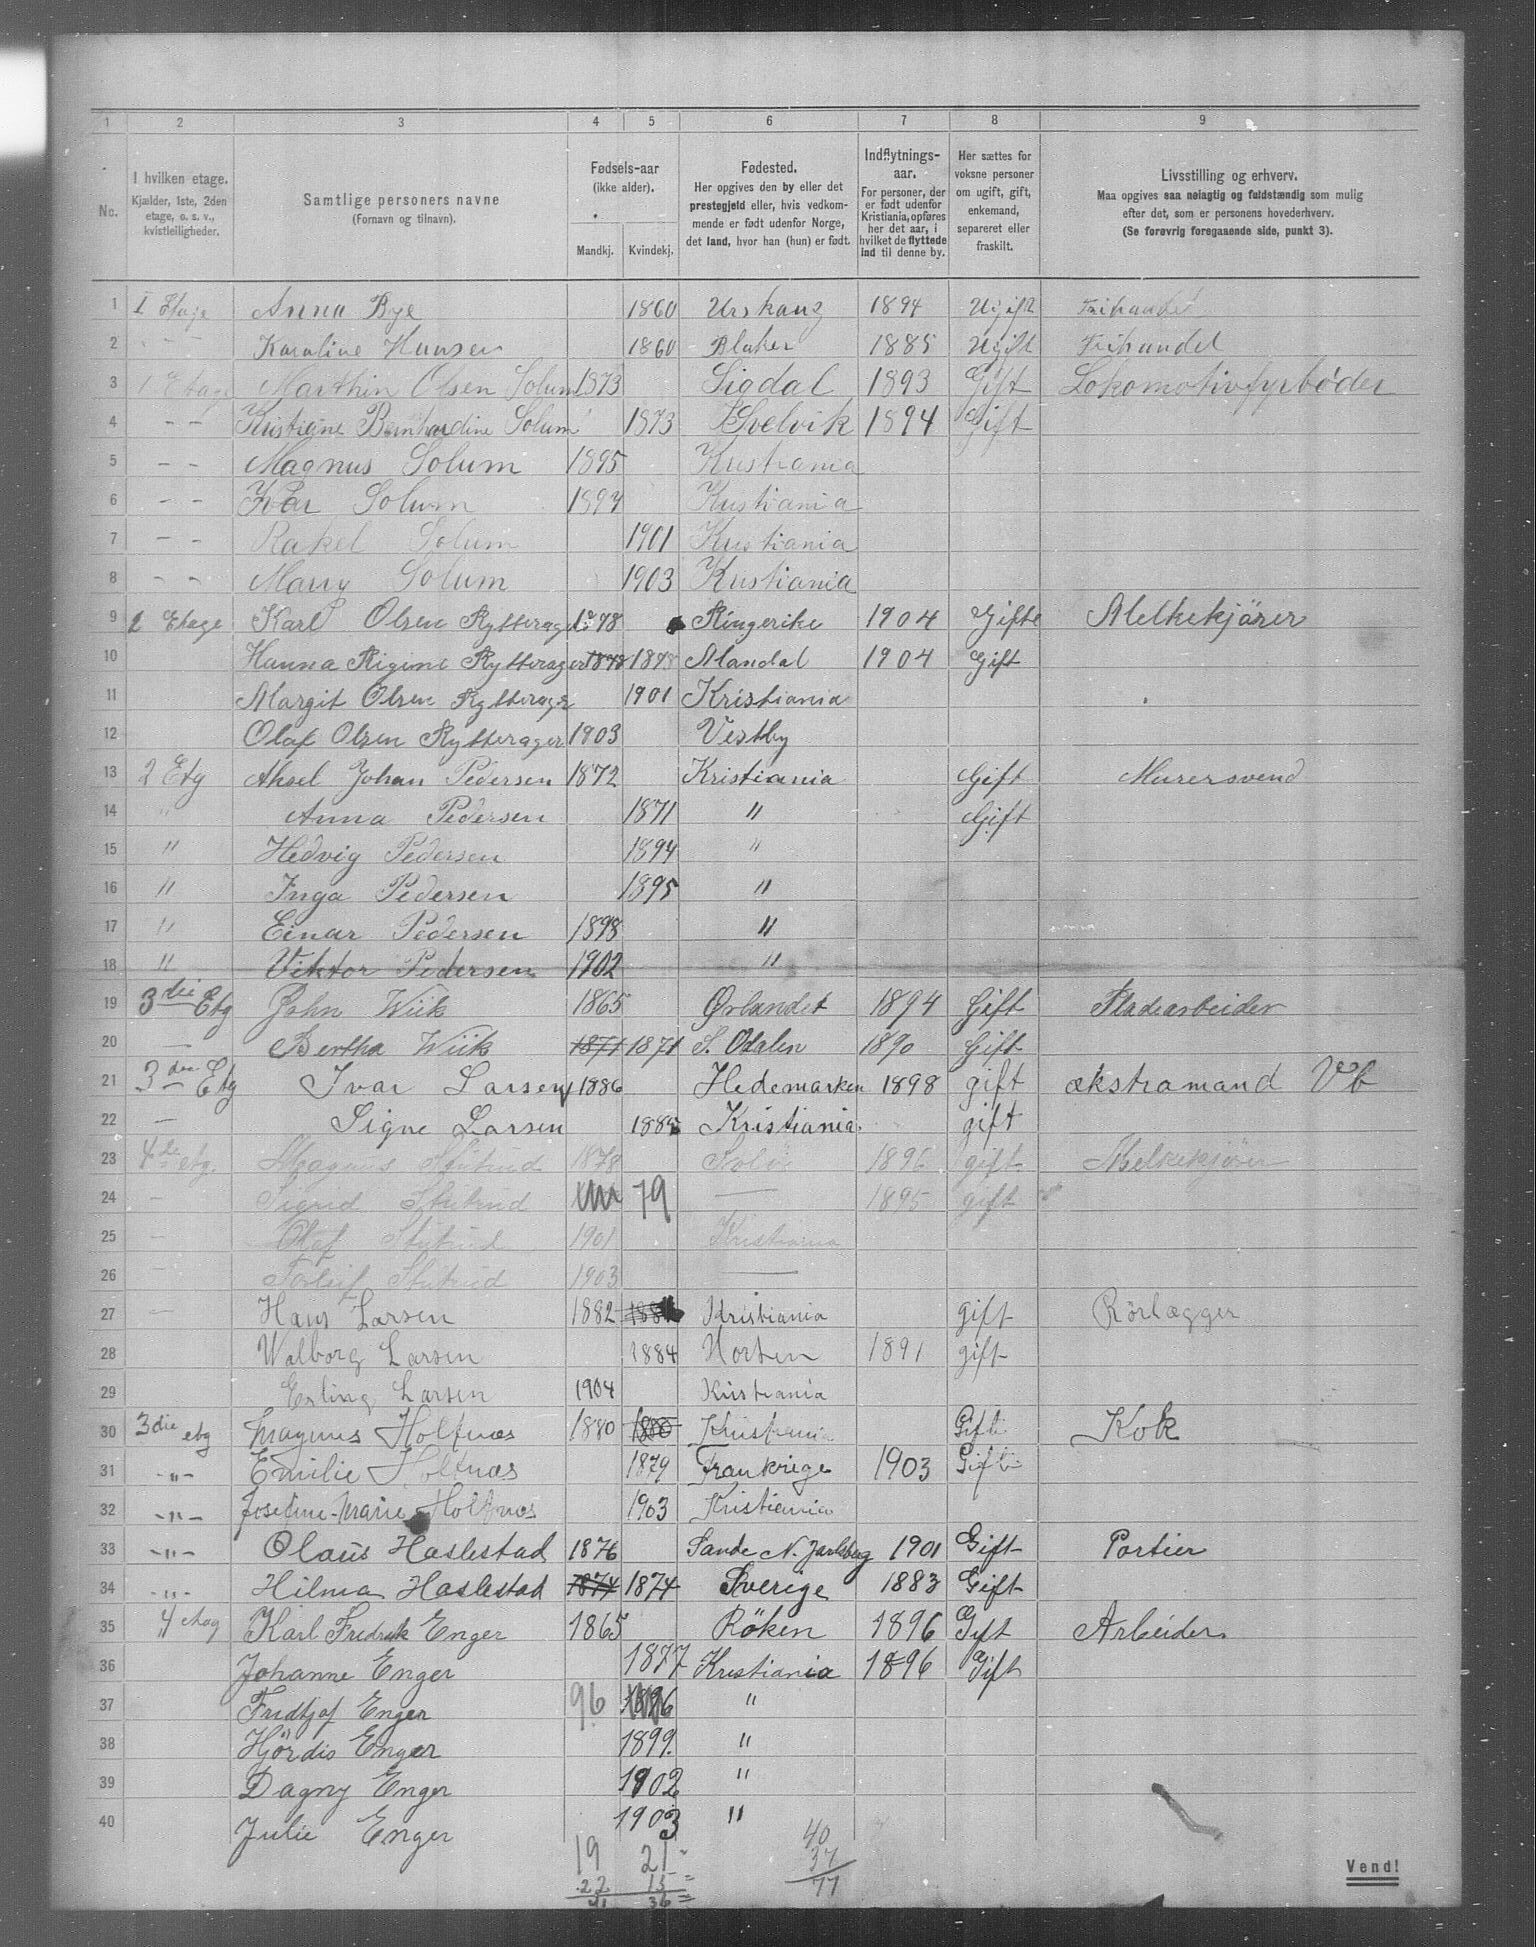 1 2 3 4 5 6 7 8 9
No.
I hvilken etage.
Kjælder, 1ste, 2den
etage, o. s. v.,
kvistleiligheder.
Samtlige personers navne
(Fornavn og tilnavn).
Fødsels-aar
(ikke alder).
Mandkj. Kvindekj.
Fødested.
Her opgives den by eller det
prestegjeld eller, hvis vedkom-
mende er født udenfor Norge,
det land, hvor han (hun) er født.
Indflytnings-
aar.
For personer, der
er født udenfor
Kristiania, opføres
her det aar, i
hvilket de flyttede
ind til denne by.
Her sættes for
voksne personer
om ugift, gift,
enkemand,
separeret eller
fraskilt.
Livsstilling og erhverv.
Maa opgives saa nøiagtig og fuldstændig som mulig
efter det, som er personens hovederhverv.
(Se forøvrig foregaaende side, punkt 3).
1 I Etage Anna Bye 1860 Urskaug 1894 Ugift Frihandel
2 - - Karoline Hansen 1860 Blaker 1885 Ugift Frihandel
3 1 Etage Marthin Olsen Solum 1873 Sigdal 1893 Gift Lokomotivfyrbøder
4 - - Kristiane Bernhardine Solum 1873 Svelvik 1894 Gift
5 - - Magnus Solum 1895 Kristiania
6 - - Ivar Solum 1897 Kristiania
7 - - Rakel Solum 1901 Kristiania
8 - - Marry Solum 1903 Kristiania
9 2 Etage Karl Olsen Rytterager 1878 Ringerike 1904 Gifte Melkekjörer
10 Hanna Rigine Rytterager 1878 1878 Mandal 1904 Gift
11 Margit Olsen Rytterager 1901 Kristiania
12 Olaf Olsen Rytterager 1903 Vestby
13 2 Etg Aksel Johan Pedersen 1872 Kristiania Gift Murersvend
14 " Anna Pedersen 1871 " Gift
15 " Hedvig Pedersen 1894 "
16 " Inga Pedersen 1895 "
17 " Einar Pedersen 1898 "
18 " Viktor Pedersen 1902 "
19 3die Etg John Wiik 1865 Ørlandet 1894 Gift Pladearbeider
20 — Bertha Wiik 1871 1871 S. Odalen 1890 Gift
21 3die Etg Ivar Larsen 1886 Hedemarken 1898 gift ekstramand Vb
22 — Signe Larsen 1885 Kristiania gift
23 4de etg. Magnus Stutrud 1878 1896 gift Melkekjörer
24 - Sigrid Stutrud 79 — 1895 gift
25 - Olaf Stutrud 1901 Kristiania
26 - Torleif Stutrud 1903 —
27 — Hans Larsen 1882 Kristiania gift Rörlægger
28 Walborg Larsen 1884 Horten 1891 gift
29 Erling Larsen 1904 Kristiania
30 3die etg Magnus Holtnæs 1880 1880 Kristiania Gift Kok
31 -"- Emilie Holtnæs 1879 Frankrige 1903 Gift
32 -"- Josefine-Marie Holtnæs 1903 Kristiania
33 -"- Olaüs Haslestad 1876 Sande N. Jarlsberg 1901 Gift Portier
34 -"- Hilma Haslestad 1874 1874 Sverige 1883 Gift
35 4 etag Karl Fredrik Enger 1865 Röken 1896 Gift Arbeider
36 Johanne Enger 1877 Kristiania 1896 Gift
37 Fridtjof Enger 96 1896 "
38 Hjördis Enger 1899. "
39 Dagny Enger 1902 "
40 Julie Enger 1903 "
19 21 40
22 15 37
41 36 77
Vend!